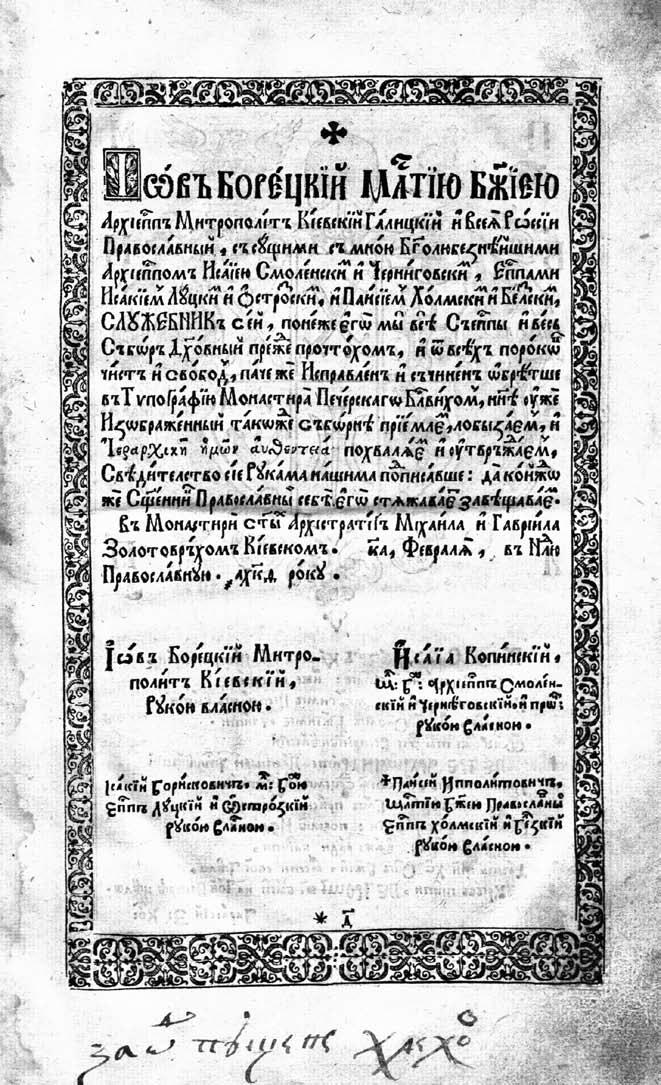 ✠
Іѡвъ Боре́цкїй Млⷭ҇тїю Бж҃їею
Архїепⷭ҇пъ Митрополи́тъ Кі́евскїй Га́лицкїй и҆ Всеѧ̀ Рѡссїи
Правосла́вный, съ сꙋ́щими съ мною Бг҃олюбезнѣ́йшими
Архїепⷭ҇помъ Иса́їею Смоле́нскиⷨ и҆ Черни́говскиⷨ, Епⷭ҇пами
Иса́кїемъ Лꙋ́цкиⷨ и҆ Ѻстро́зскиⷨ, и҆ Паи́сїеⷨ Хо́лмскиⷨ и҆ Бе́лзскиⷨ,
СЛꙊЖЕ́БНИКЪ се́й, поне́же є҆гѡ̀ мы̀ всѣ̀ Съепⷭ҇пы и҆ ве́сь
Събѡ́ръ Дх҃о́вный пре́жⷣе прочто́хомъ, и҆ ѿ всѣ́хъ поро́кѡⷡ
чи́стъ и҆ сво́бодⷩ, па́че же Исправле́нъ и҆ съчине́нъ ѡ҆брѣ́тше
въ Тѵпогра́фїю Монастирѧ̀ Пече́рскагѡ бл҃вихоⷨ, нн҃ѣ ᲂу҆же
Изѡбраже́нный та́коже събо́рнѣ прїе́млеⷨ, лобыза́еⷨ, и҆
похвалѧ́еⷨ и҆ ᲂу҆твръжа́еⷨ,
Свѣди́телство сїе Рꙋка́ма на́шима поⷣписа́вше: да ко́йжⷣѡ
же Сщ҃е́нниⷦ Правосла́вный себѣ̀ є҆гѡ̀ стѧжава́еⷮ завѣщава́еⷨ.
Въ Монастирѝ ст҃ыⷯ Архистрати́гъ Міхаи́ла и҆ Гаврїи́ла
Золотоврьхомъ Кі́евскомъ. к҃а, Февра́лѧ, въ Нлⷣю
Правосла́внꙋю. ҂ахк҃д ро́кꙋ.
Іѡвъ Боре́цкїй Митро-
поли́тъ Кі́евскїй,
Рꙋко́ю вла́сною.
Иса́їа Копи́нскїй,
Мⷭ҇: Бⷤ: Архїепⷭ҇пъ Смоле́н-
скїй и҆ Черни́говскїй. и҆ прѡⷱ:
рꙋко́ю вла́сною.
Іса́кїй Бори́сковичъ. мⷭ҇: Бо҃ю
Епⷭ҇пъ Лꙋцкїй и҆ Ѻстро́зкїй
рꙋко́ю влⷭ҇ною.
✝Паи́сїй Ипполи́товичъ,
Млⷭ҇тїю Бж҃ею Правосла́вный
Епⷭ҇пъ Хо́лмскїй и҆ Бе́лзкїй
рꙋко́ю вла́сною.
* д҃